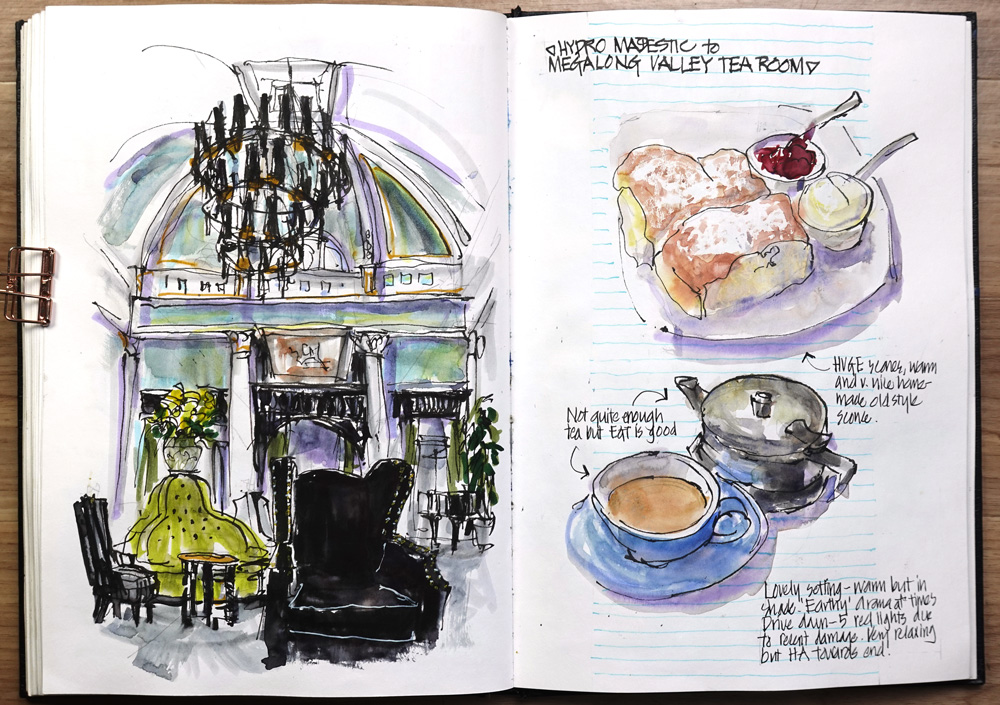 HYDRO MAJESTIC to
MEGALONG VALLEY TEA ROOM
HUGE scones, warm
and v. nice home-
made old style
scone.
Not quite enough
tea but EAT is good
Lovely setting - warm but in
shade. 'Earthy' aroma at times
Drive down - 5 red lights due
to recent damage. Very relaxing
but HA towards end.